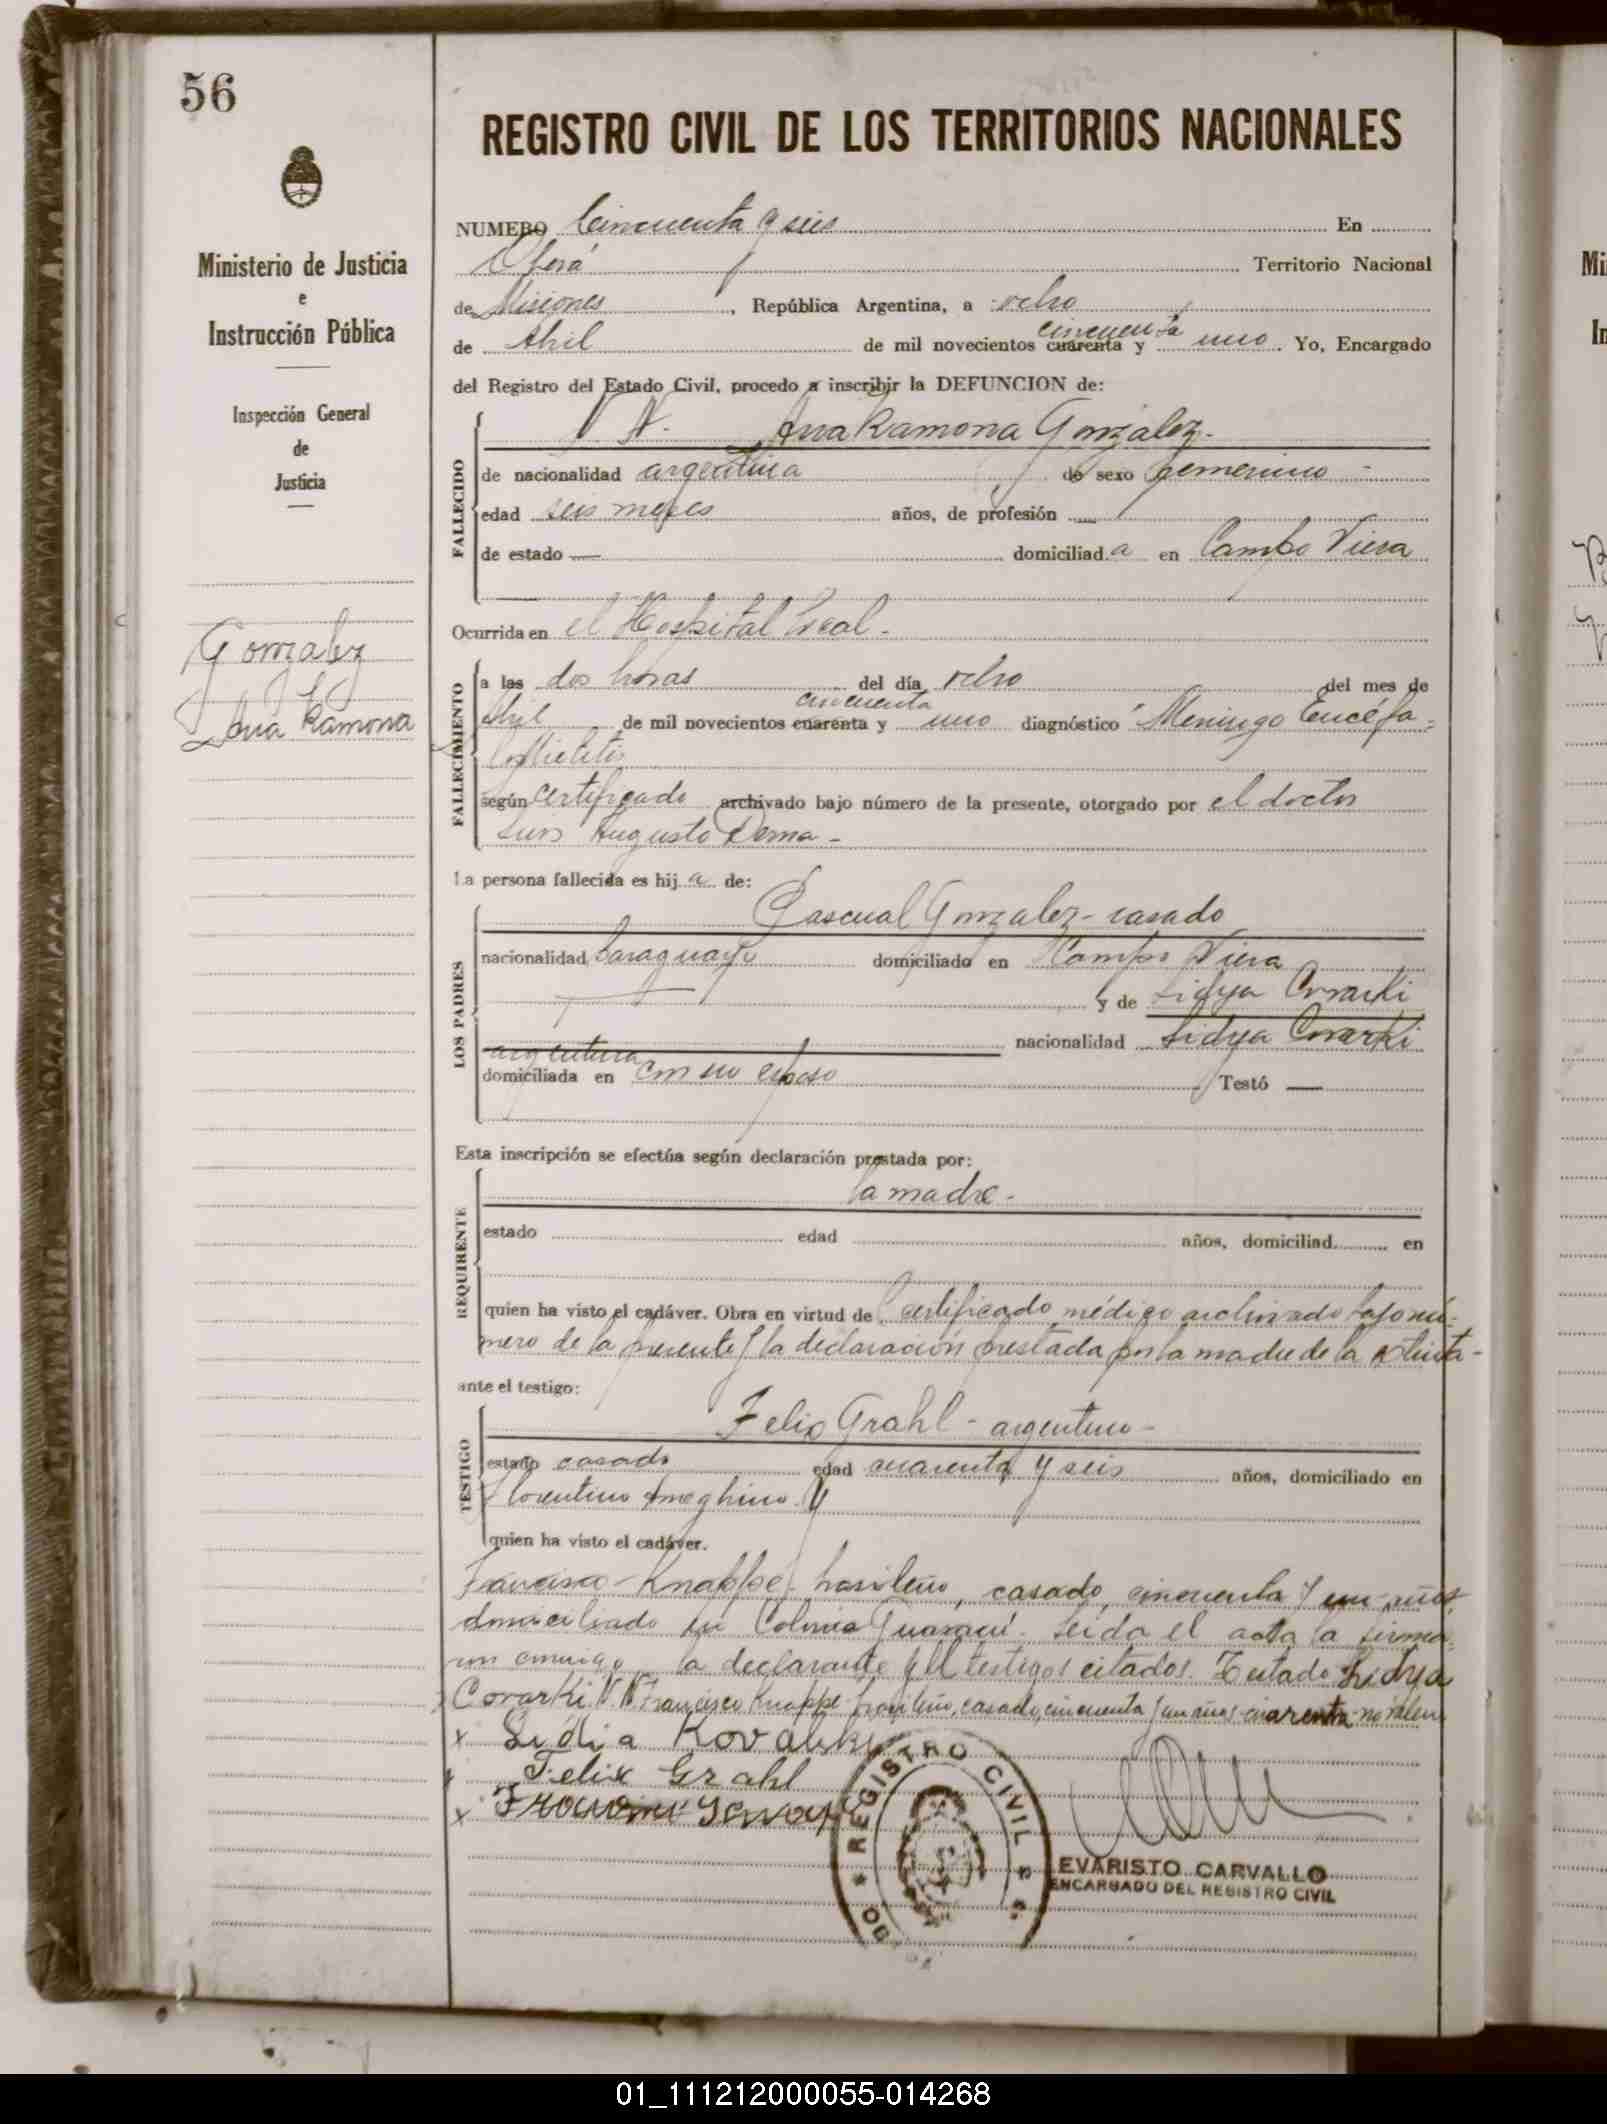 56
Ministerio de Justicia
e
Instrucción Pública
Inspección General
de
Justicia
Gonzalez
Ana Ramona
REGISTRO CIVIL DE LOS TERRITORIOS NACIONALES
NUMERO Cincuenta y seis En
Oberá Territorio Nacional
de Misiones, República Argentina, a ocho
cincuenta
de Abril de mil novecientos cuarenta y uno. Yo, Encargado
del Registro del Estado Civil, procedo a inscribir la DEFUNCION de:
FALLECIDO
N. N. Ana Ramona Gonzalez.
de nacionalidad argentina de sexo femenino
edad seis meses años, de profesión
de estado domiciliada en Campo Viera
Ocurrida en el Hospital local.
FALLECIMIENTO
a las dos horas del día ocho del mes de
cincuenta
Abril de mil novecientos cuarenta y uno diagnóstico "Meningo Encefa
según certificado archivado bajo número de la presente, otorgado por el doctor
Luis Augusto Derna
La persona fallecida es hija de:
LOS PADRES
Pascual Gonzalez - casado
nacionalidad Paraguayo domiciliado en Campo Viera
y de Lidya Covarki
nacionalidad Lidya Covarki
argentina
domiciliada en con su esposo Testó
Esta inscripción se efectúa según declaración prestada por:
REQUIRENTE
la madre.
estado edad años, domiciliad en
quien ha visto el cadáver. Obra en virtud de Certificado médico archivado bajo nú-
mero de la presente y la declaración prestada por la madre de la extinta
ante el testigo:
TESTIGO
Felix Grahl - argentino
estado casado edad cuarenta y seis años, domiciliado en
Florentino Ameghino. Y
quien ha visto el cadáver.
Francisco Knappe, brasileño, casado, cincuenta y un años
domiciliado en Colonia Guaraní. Leída el acta la firma-
un conmigo la declarante y los testigos citados. Testado Lidya
Covarki N. N. Francisco Knappe brasileño, casado, cincuenta y un años cuarenta no valen
x Lidia Kovalski
Felix Grahl
x
REGISTRO CIVIL
EVARISTO CARVALLO
ENCARGADO DEL REGISTRO CIVIL
01_111212000055-014268